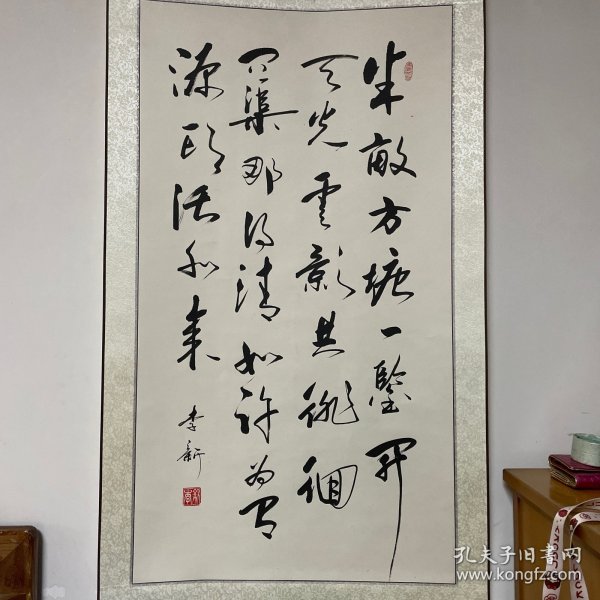 半畝方塘一鑒開
天光雲影共徘徊
問渠那得清如許為有
源頭活水來
李新
孔夫子旧书网
www.kongfz.com